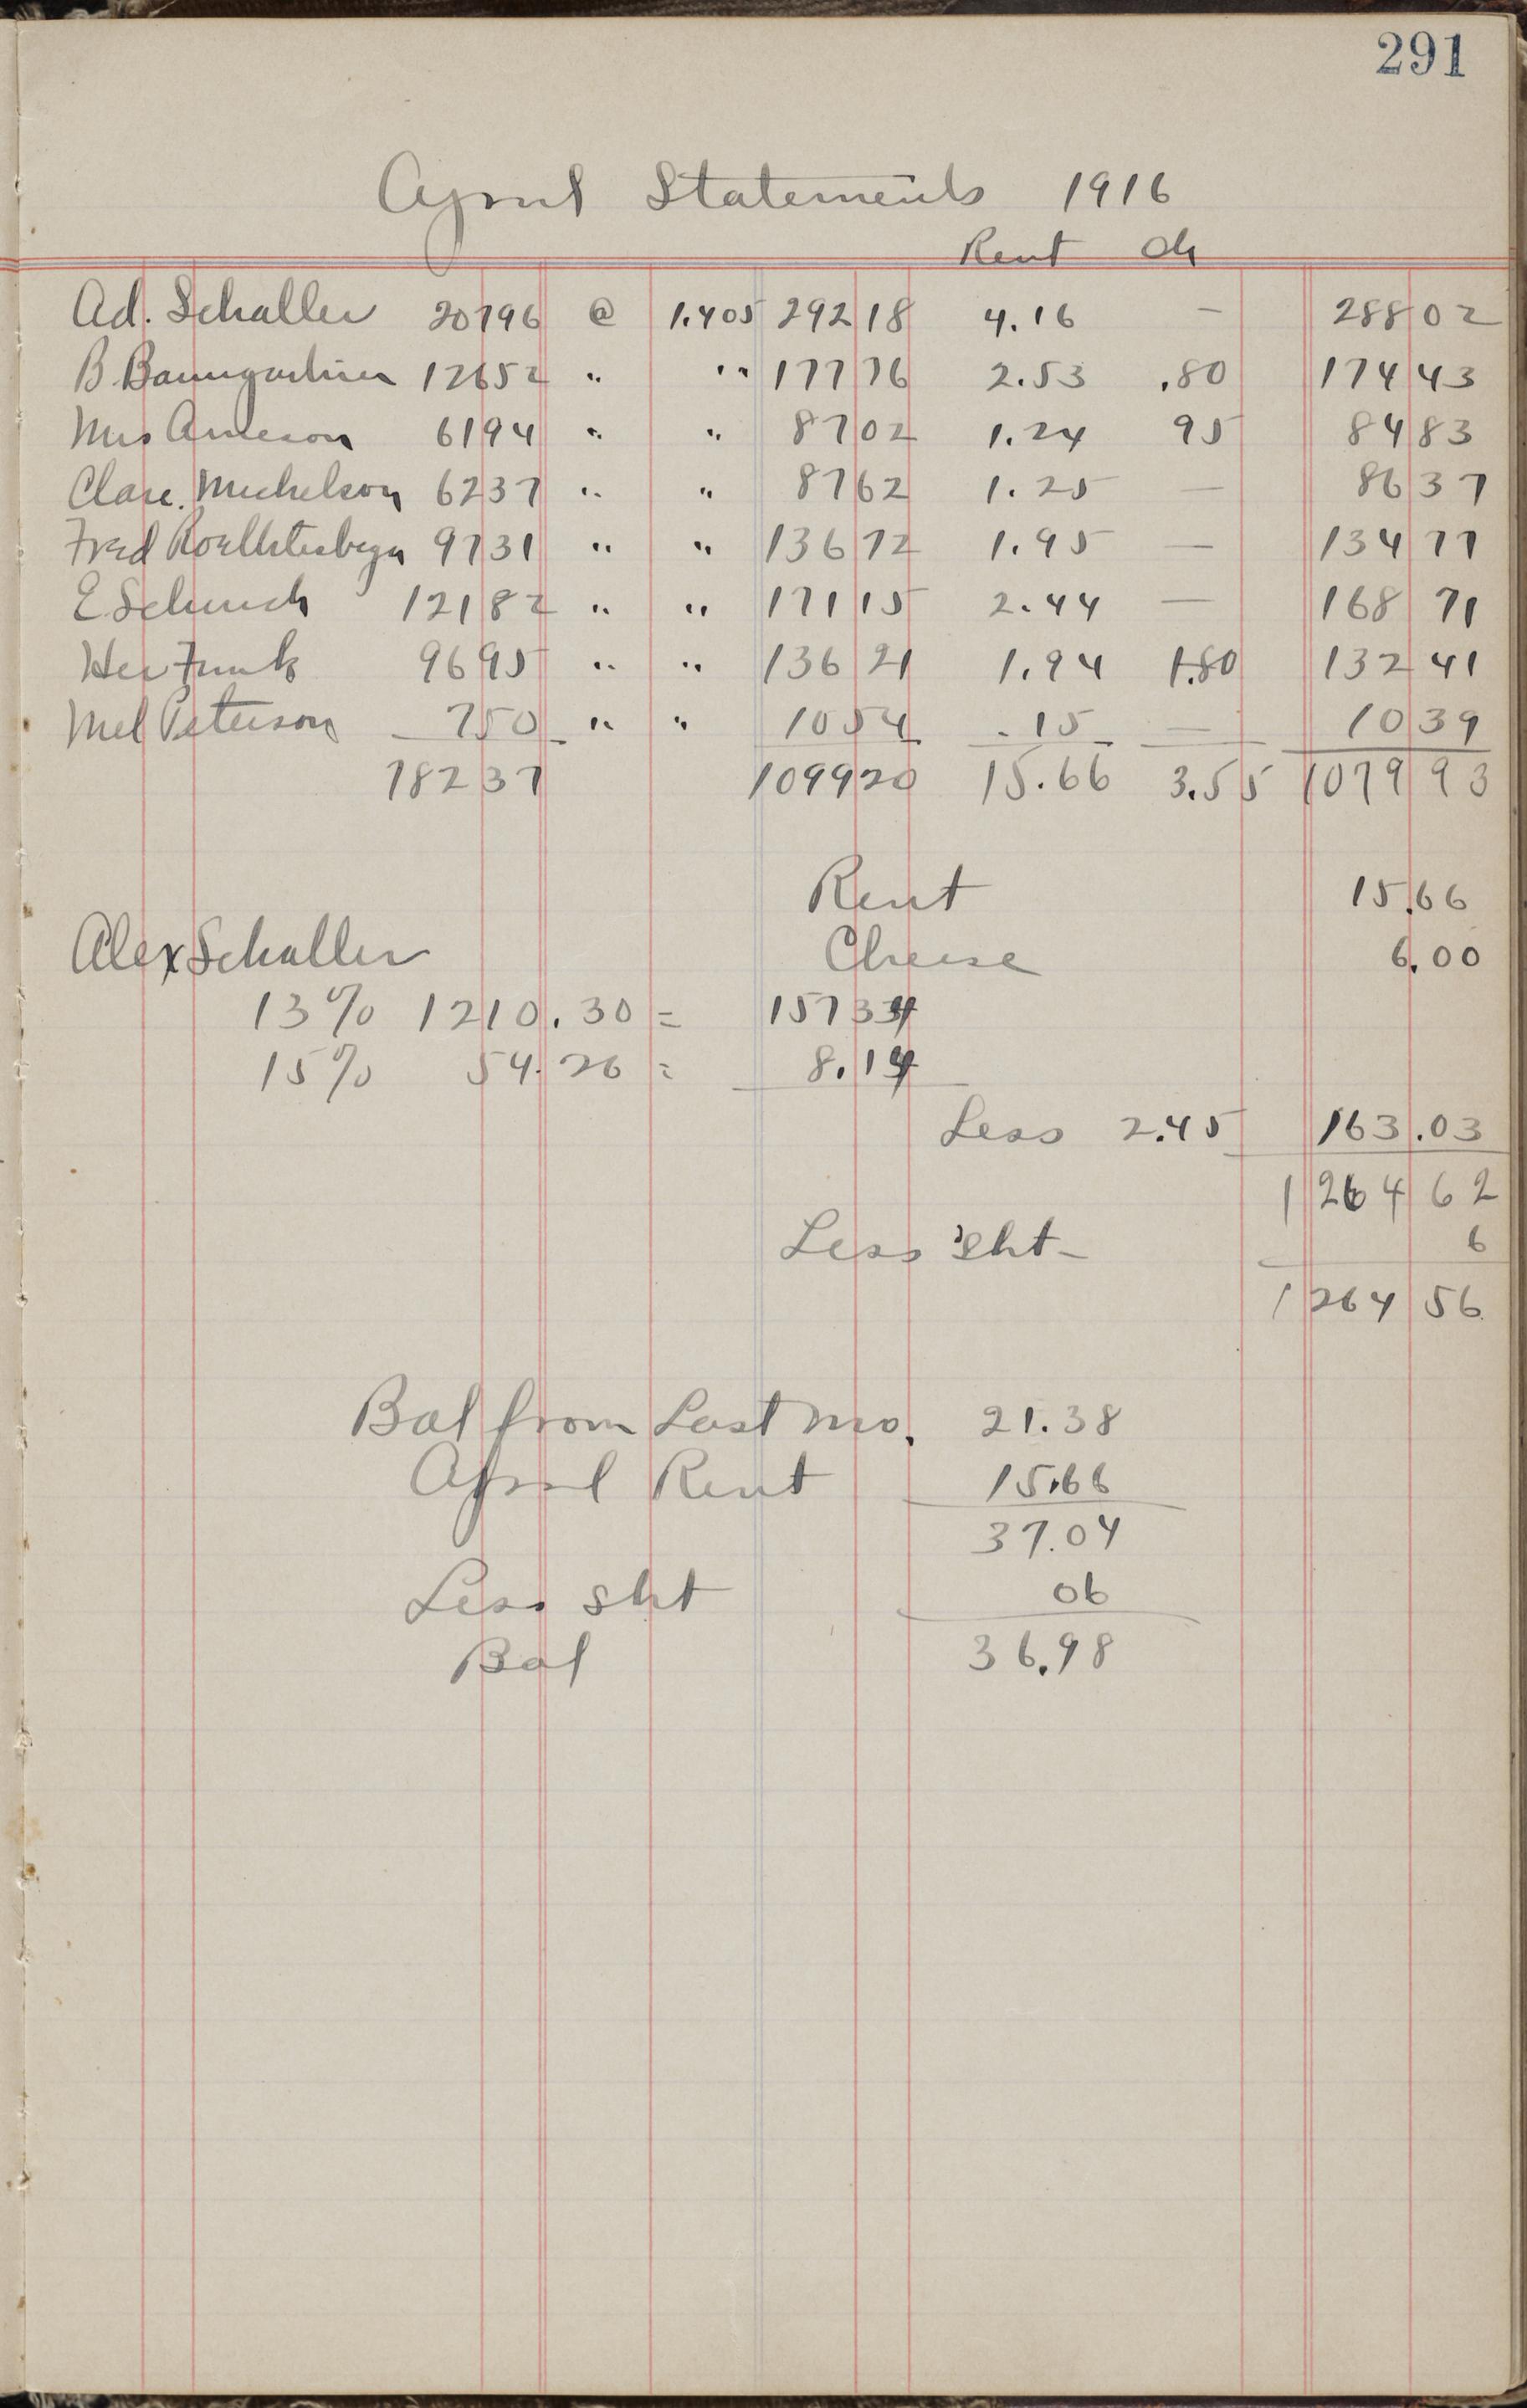 291
April Statements 1916
Rent Ch
Ad. Schaller 20796 @ 1.405 292 18 4.16 — 288 02
B. Baumgartner 12652 " " 177 76 2.53 .80 174 43
Mrs Arneson 6194 " " 87 02 1.24 95 84 83
Clare. Michelson 6237 " " 87 62 1.25 — 86 37
Fred 9731 " " 136 72 1.95 — 134 77
E Schuch 12182 " " 171 15 2.44 — 168 71
Her Funk 9695 " " 136 21 1.94 1.80 132 41
Mel Peterson 750 " " 10 54 .15 — 10 39
78237 1099 20 15.66 3.55 1079 93
Rent 15.66
Alex Schaller Cheese 6.00
13% 1210.30 = 157 34
15% 54.26 = 8.14
Less 2.45 163.03
1 264 62
Less sht- 6
1 264 56
Bal from Last mo. 21.38
April Rent 15.66
37.04
Less sht 06
Bal 36.98